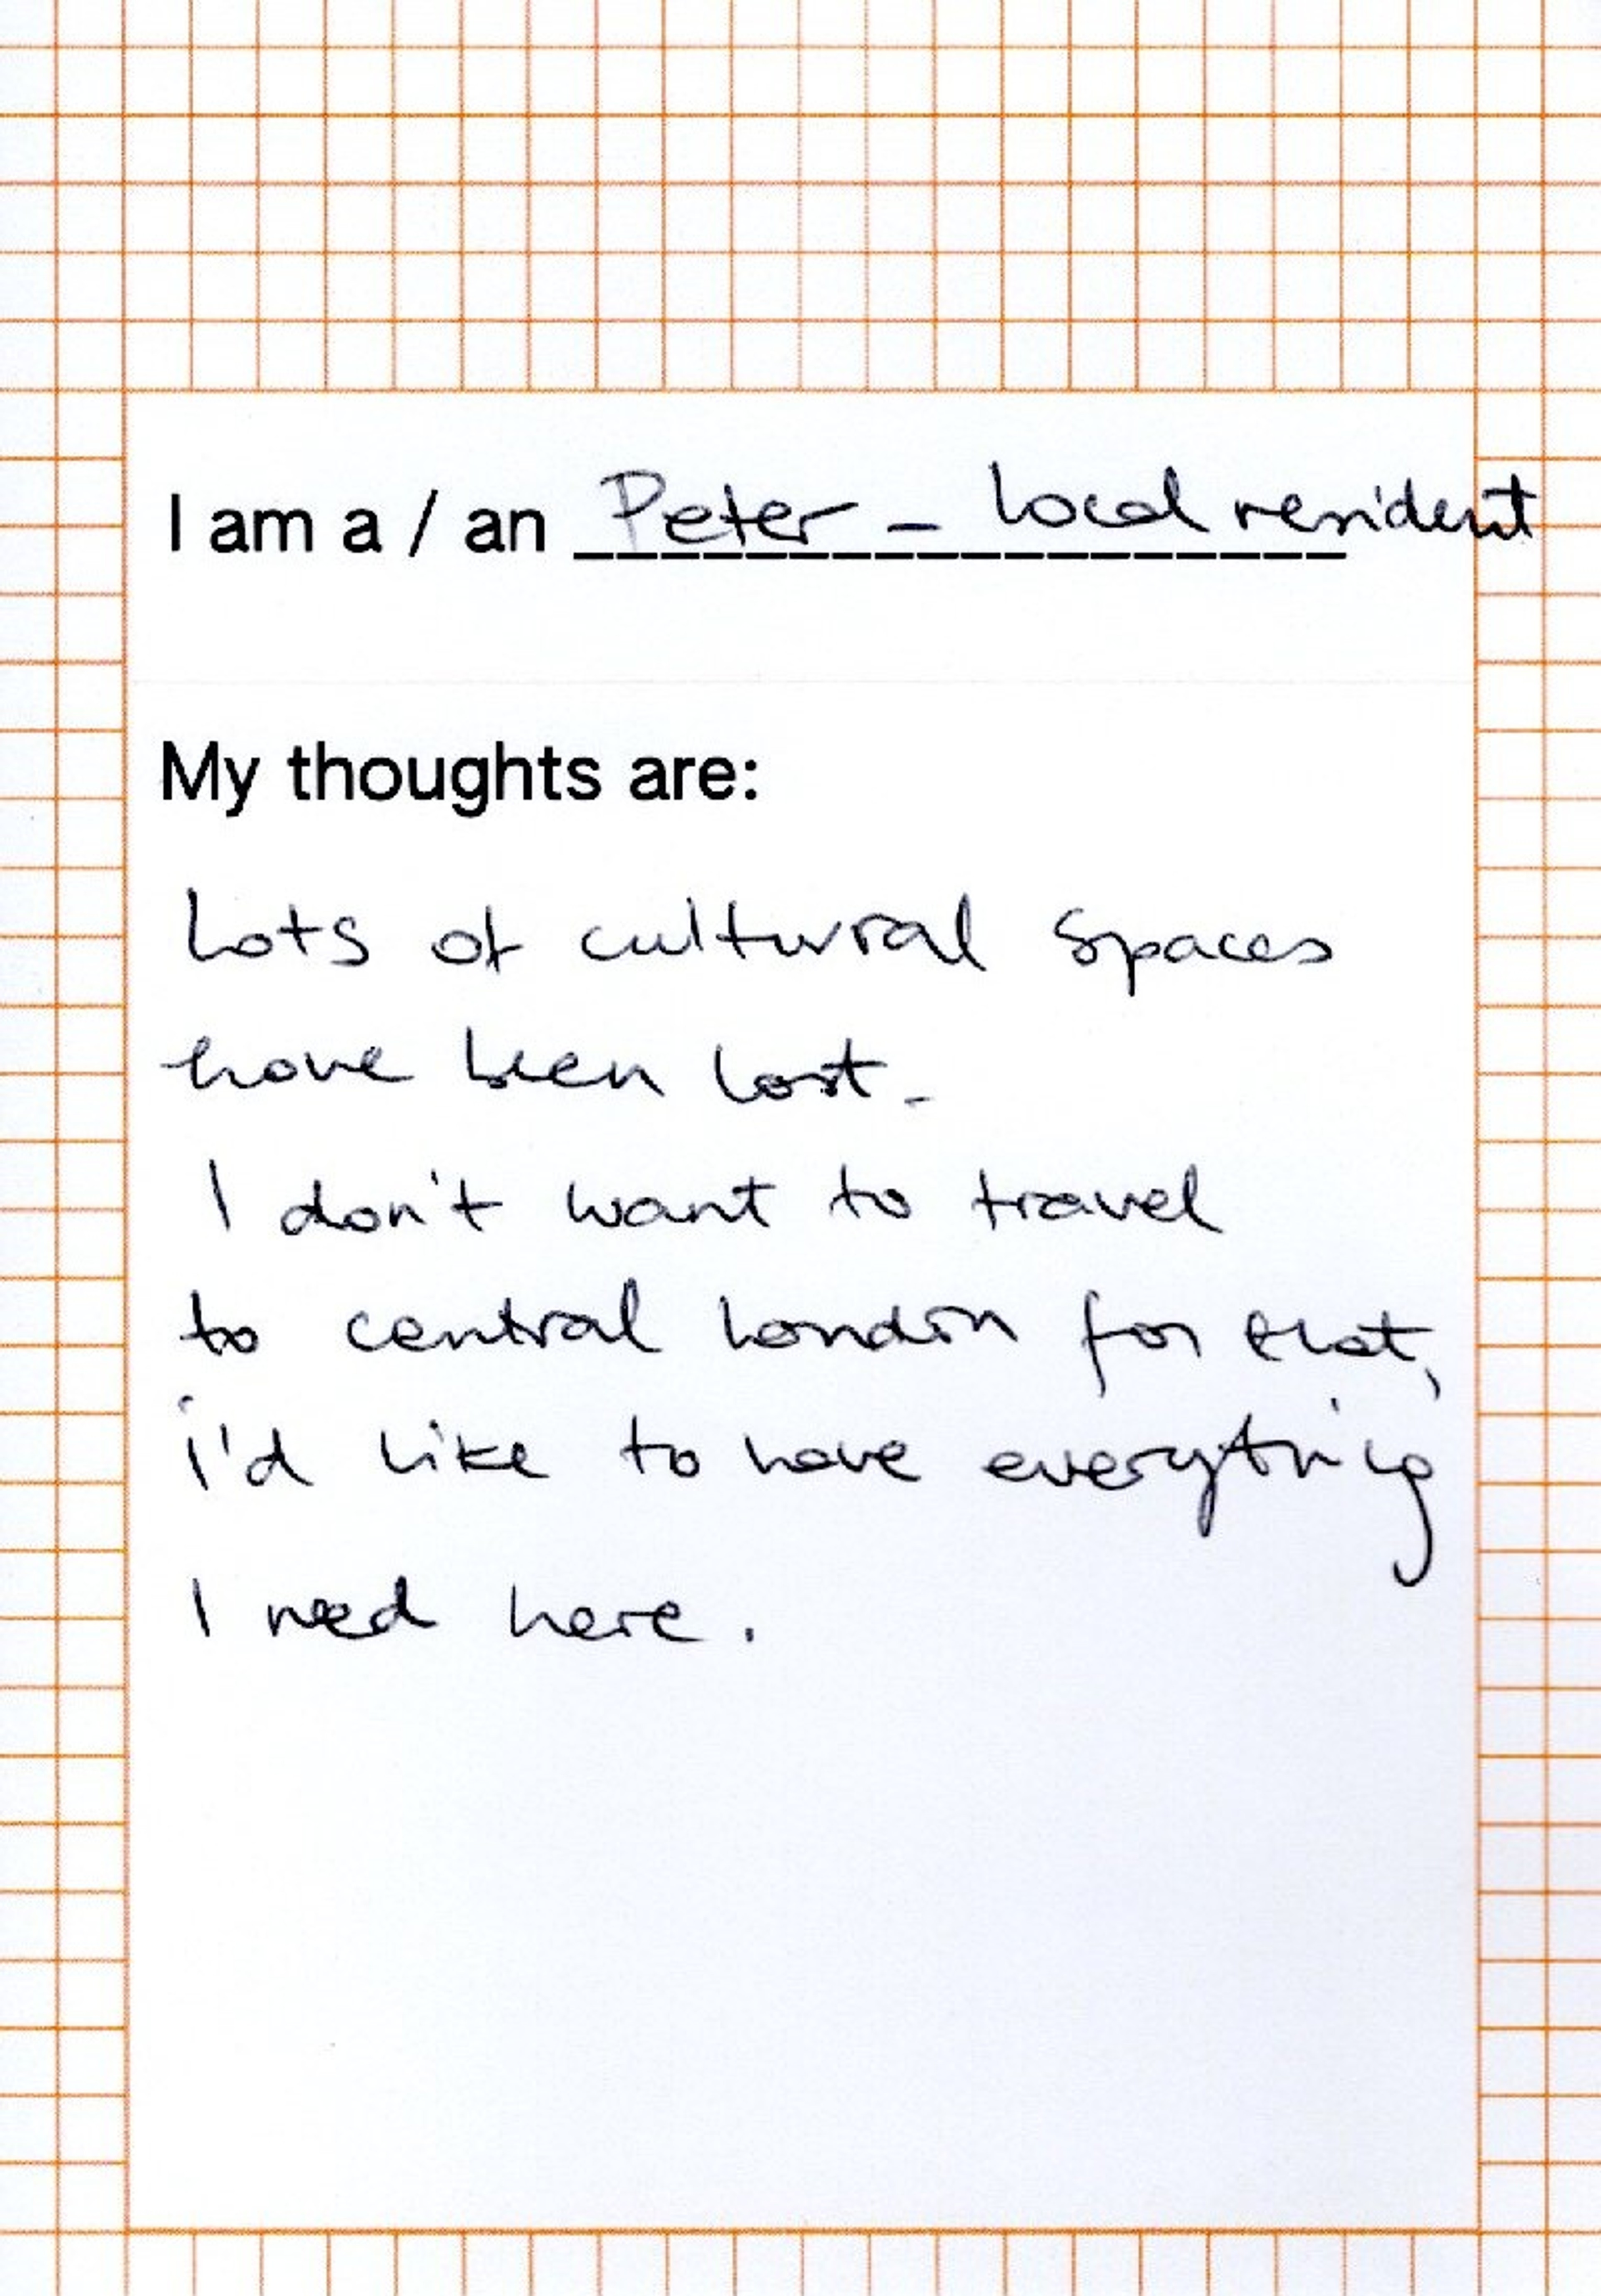 I am a / an Peter - local resident
My thoughts are:
Lots of cultural spaces
have been lost.
I don't want to travel
to central London for that,
i'd like to have everything
I need here.